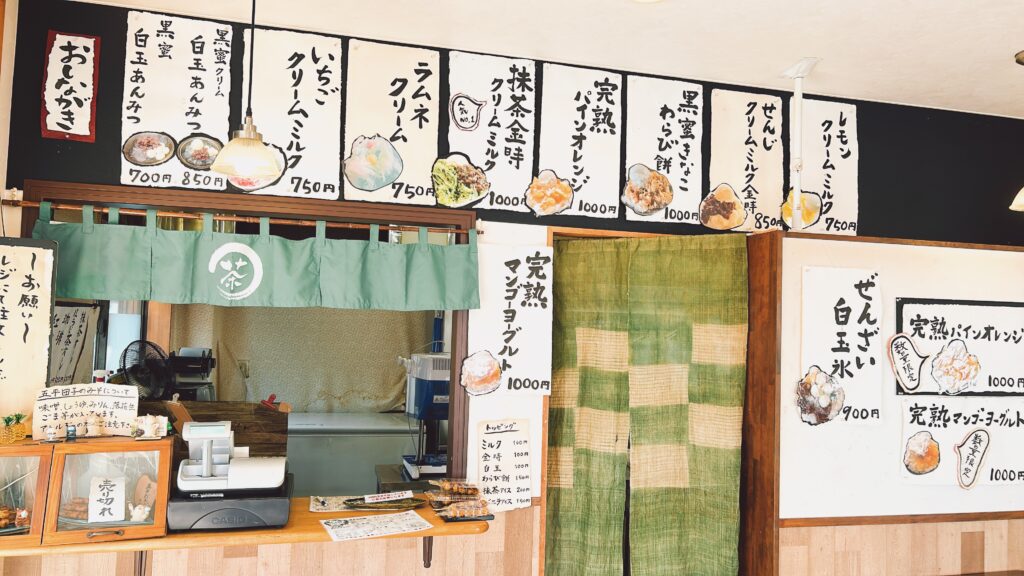 おしながき
黒蜜クリーム
白玉あんみつ
黒蜜
白玉あんみつ
700円
850円
いちご
クリームミルク
750円
ラムネ
クリーム
750円
抹茶金時
クリームミルク
人気No.1
1000円
完熟
パインオレンジ
1000円
黒蜜きなこ
わらび餅
1000円
せんじ
クリームミルク金時
850円
レモン
クリームミルク
750円
茶
〜お願い〜
レジにて注文
五平団子のみそについて
味噌、しょうゆ、みりん、落花生
ごま
売り切れ
CASIO
完熟
マンゴーヨーグルト
1000円
トッピング
ミルク 100円
金時 100円
白玉
わらび餅 150円
抹茶アイス 200円
バニラアイス 150円
ぜんざい
白玉氷
900円
完熟パインオレンジ
数量限定
1000円
完熟マンゴーヨーグルト
数量限定
1000円